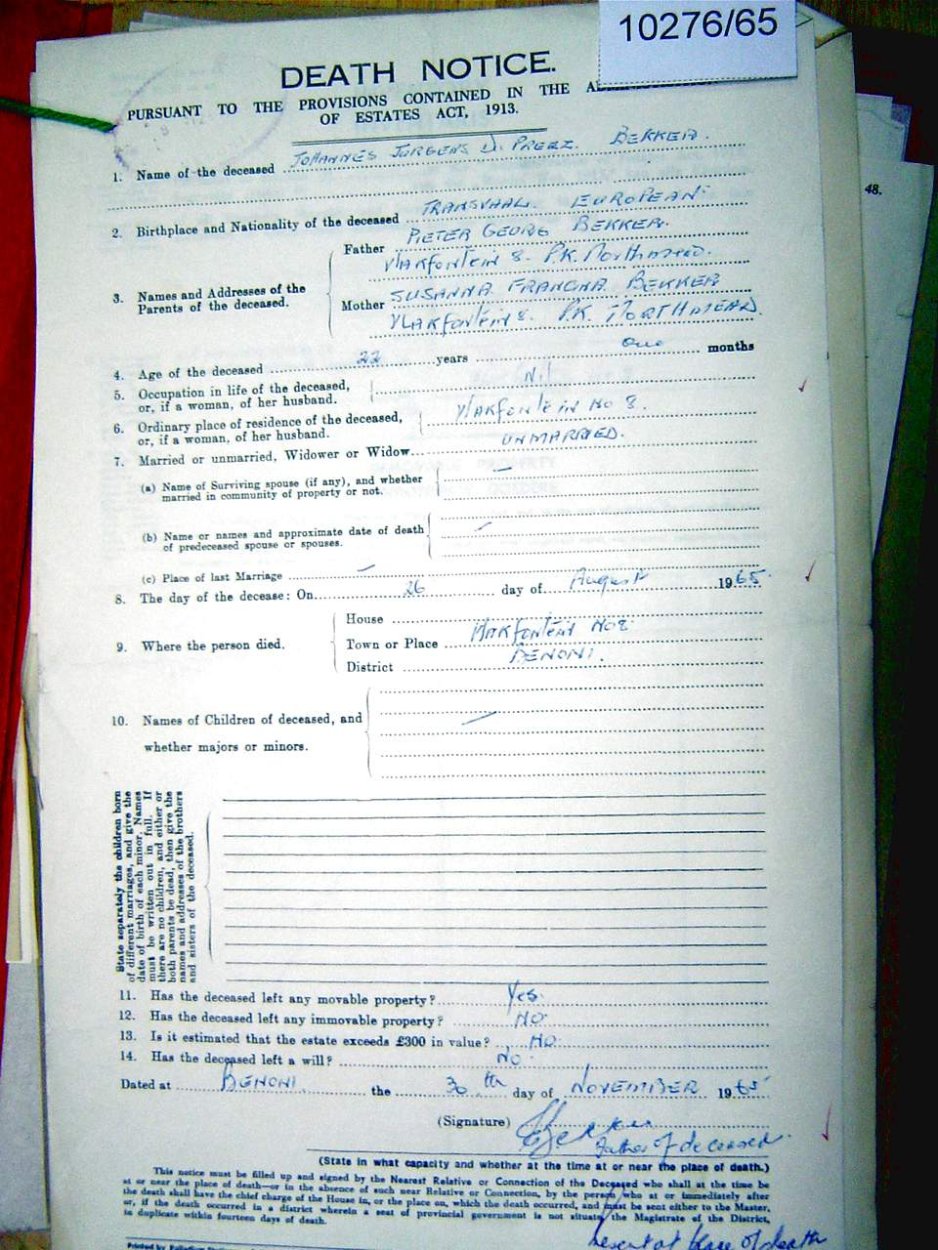 10276/65
DEATH NOTICE.
PURSUANT TO THE PROVISIONS CONTAINED IN THE
OF ESTATES ACT, 1913.
48.
1. Name of the deceased JOHANNES JURGENS D. PREEZ BEKKER.
2. Birthplace and Nationality of the deceased TRANSVAAL EUROPEAN
3. Names and Addresses of the Parents of the deceased.
Father PIETER GEORG BEKKER.
VlakfonTein 8. P.K. Northmead.
Mother SUSANNA FRANCINA BEKKER
VLAKFONTEIN 8. P.K. NORTHMEAD.
4. Age of the deceased 22 years one months
5. Occupation in life of the deceased,
or, if a woman, of her husband. Nil
6. Ordinary place of residence of the deceased,
or, if a woman, of her husband. Vlakfontein No 8.
7. Married or unmarried, Widower or Widow UNMARRIED.
(a) Name of Surviving spouse (if any), and whether
married in community of property or not.
(b) Name or names and approximate date of death
of predeceased spouse or spouses.
(c) Place of last Marriage
8. The day of the decease: On 26 day of August 1965
9. Where the person died.
House
Town or Place Vlakfontein No 8
District BENONI.
10. Names of Children of deceased, and
whether majors or minors.
State separately the children born
of different marriages, and give the
date of birth of each minor. Names
must be written out in full. If
there are no children, and either or
both parents be dead, then give the
names and addresses of the brothers
and sisters of the deceased.
11. Has the deceased left any movable property? Yes.
12. Has the deceased left any immovable property? NO
13. Is it estimated that the estate exceeds £300 in value? NO
14. Has the deceased left a will? NO
Dated at BENONI the 30th day of NOVEMBER 1965
(Signature)
Father of deceased.
(State in what capacity and whether at the time at or near the place of death.)
This notice must be filled up and signed by the Nearest Relative or Connection of the Deceased who shall at the time be
at or near the place of death—or in the absence of such near Relative or Connection, by the person who at or immediately after
the death shall have the chief charge of the House in, or the place on, which the death occurred, and must be sent either to the Master,
or, if the death occurred in a district wherein a seat of provincial government is not situate, the Magistrate of the District,
in duplicate within fourteen days of death.
present at place of death
Printed by